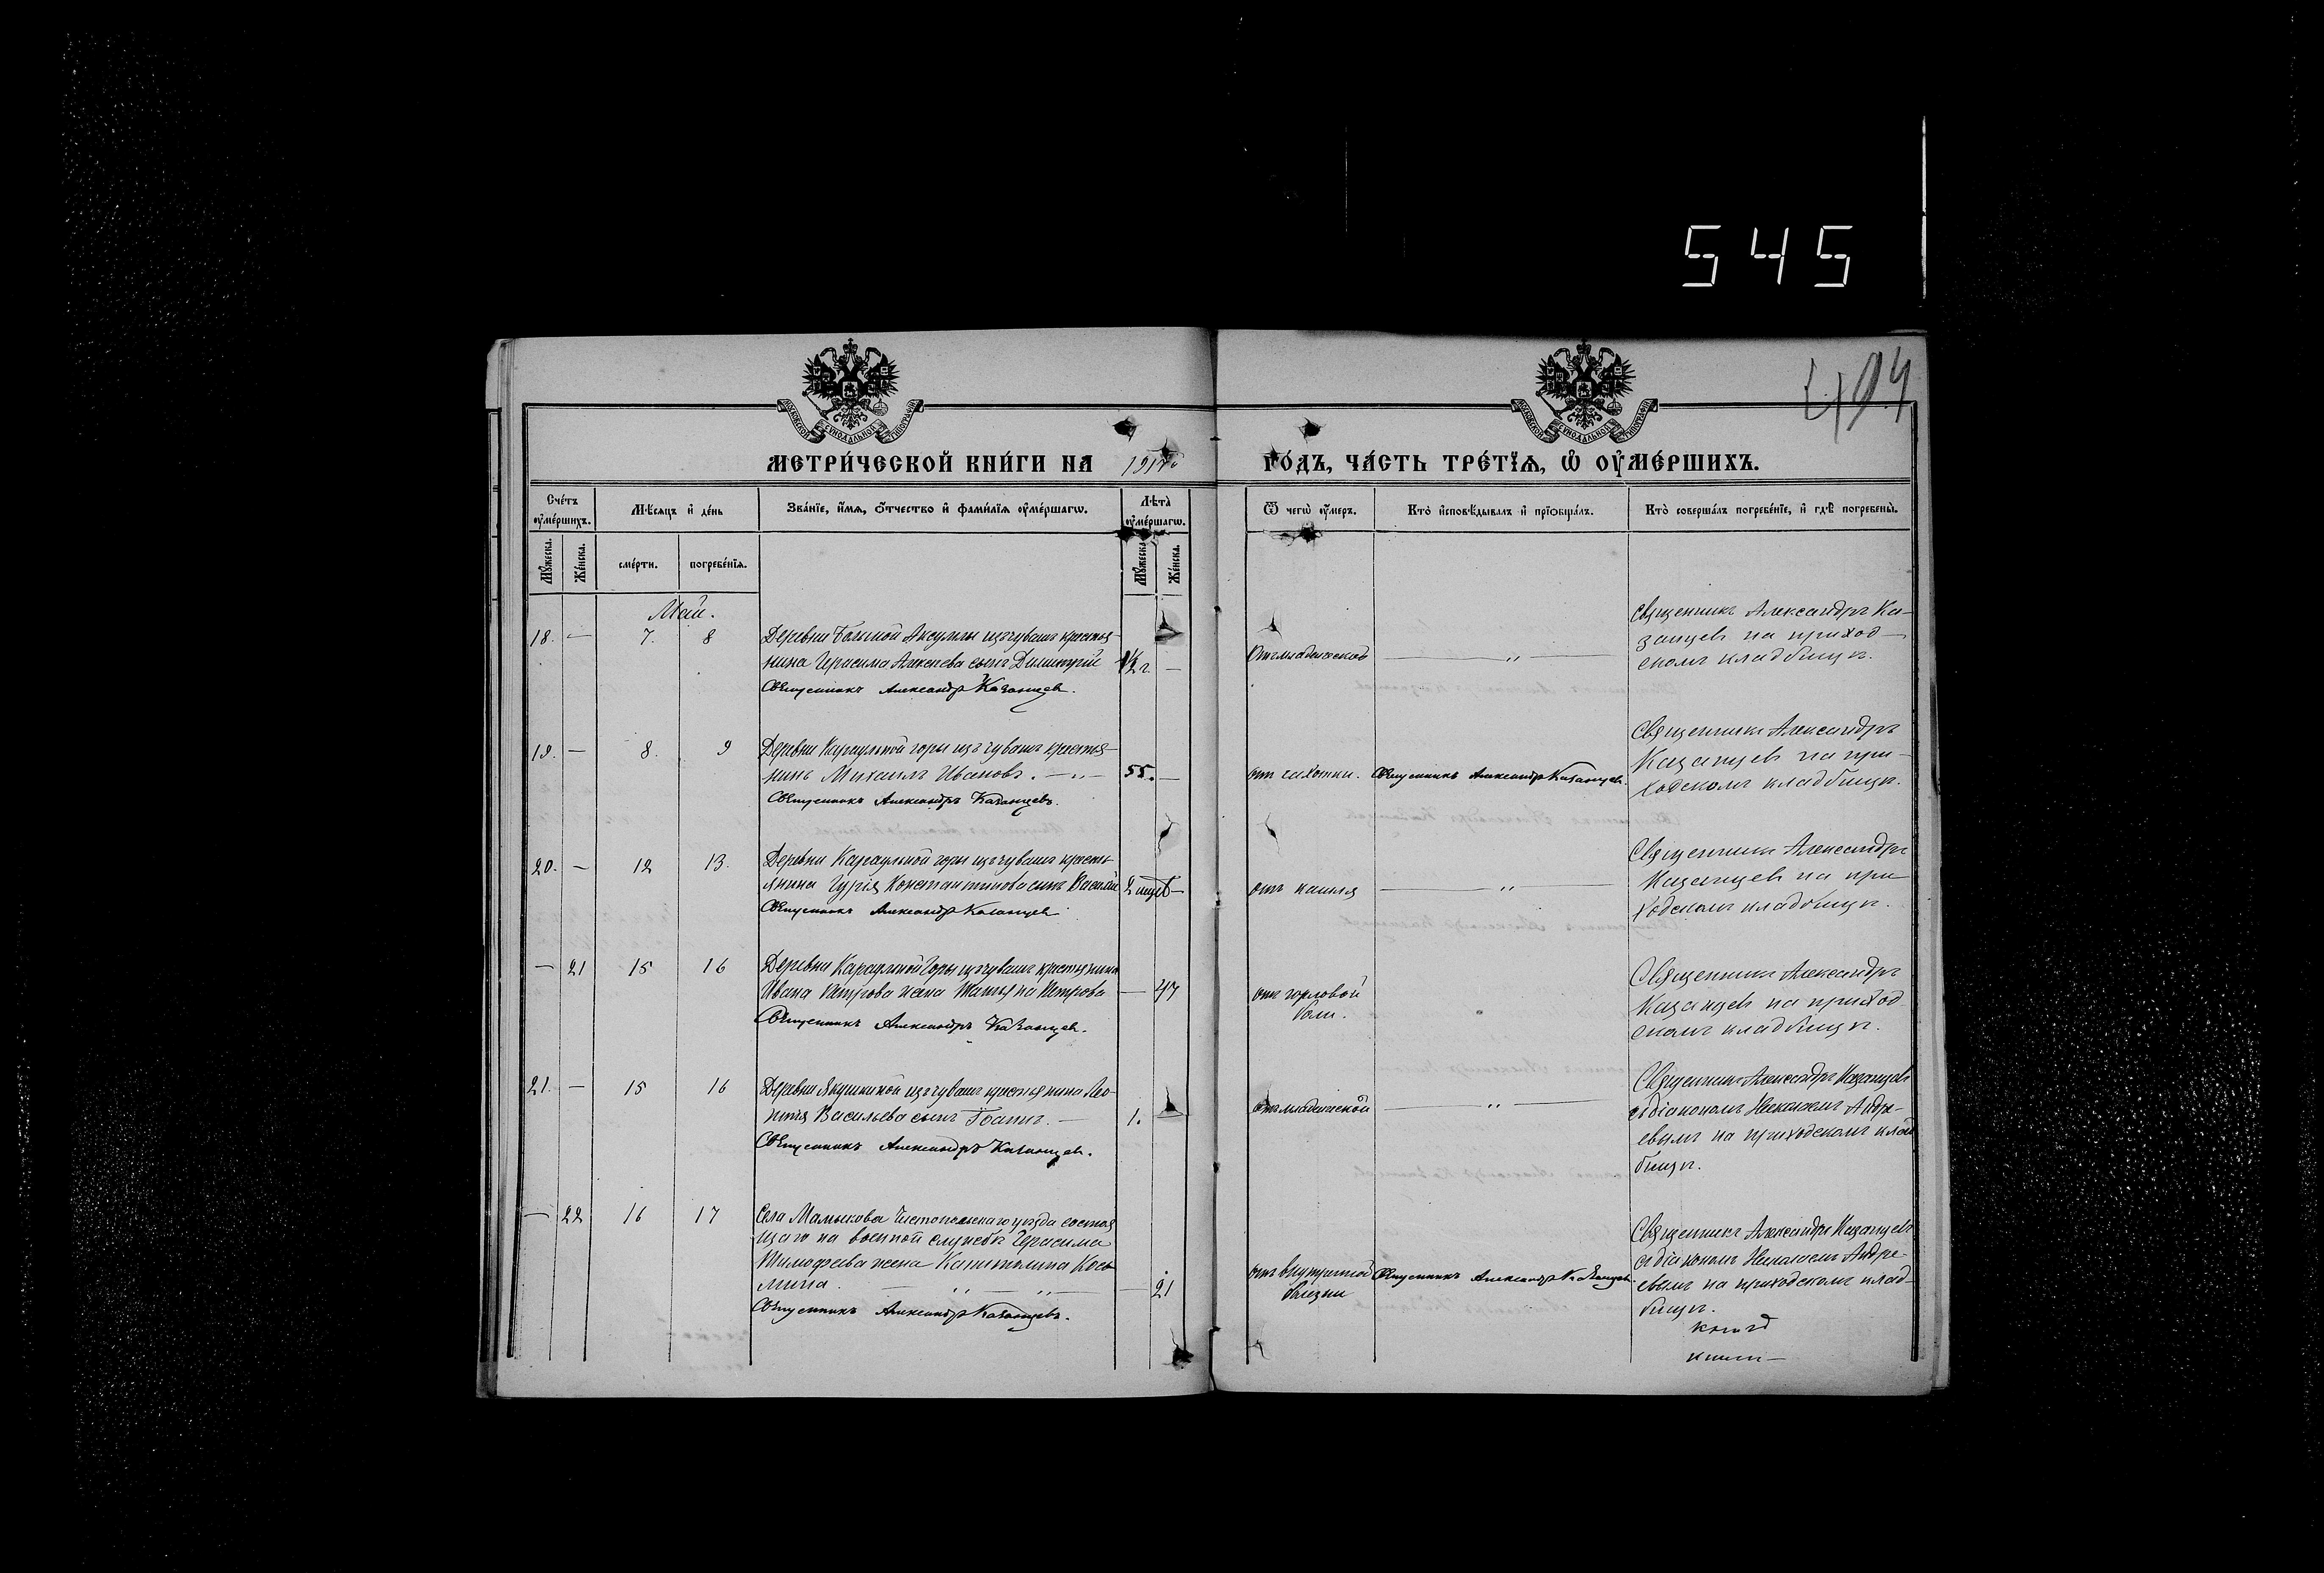 545
494
МОСКОВСКОЙ СѴНОДАЛЬНОЙ ТИПОГРАФІИ
МОСКОВСКОЙ СѴНОДАЛЬНОЙ ТИПОГРАФІИ
МЕТРИ́ЧЕСКОЙ КНИ́ГИ НА
ГО́ДЪ, ЧА́СТЬ ТРЕ́ТЇѦ, Ѡ҆ ОУ҆МЕ́РШИХЪ.
Сче́тъ оу҆ме́ршихъ.
Мѣ́сяцъ и҆ де́нь
Зва́нїе, и҆́мѧ, ѻ҆́тчество и҆ фами́лїѧ оу҆ме́ршагѡ.
Лѣ̀та оу҆ме́ршагѡ.
Ѿ чегѡ̀ оу҆́меръ.
Кто̀ и҆сповѣ́дывалъ и҆ прїѡбща́лъ.
Кто̀ соверша́лъ погребе́нїе, и҆ гдѣ̀ погребены̀.
Мꙋ́жеска.
Же́нска.
сме́рти.
погребе́нїѧ.
Мꙋ́жеска
Же́нска.
Май.
18. — 7. 8
Деревни Аксумлы изъ чувашъ крестья-
нина Герасима Алексѣева сынъ Димитрій
Священникъ Александръ Казанцев.
1/2 г. —
Отъ младенческой
— „ —
Священникъ Александръ Ка-
занцевъ на приход-
скомъ кладбищѣ.
19. — 8. 9
Деревни Караульной горы изъ чувашъ крестья-
нинъ Михаилъ Ивановъ. — „ —
Священникъ Александръ Казанцевъ.
55. —
отъ чахотки.
Священникъ Александръ Казанцев.
Священникъ Александръ
Казанцевъ на при-
ходскомъ кладбищѣ.
20. — 12 13.
Деревни Караульной горы изъ чувашъ кресть-
янина Гурія Константинова сынъ Василій
Священникъ Александръ Казанцев
2
отъ кашля
— „ —
Священникъ Александръ
Казанцевъ на при-
ходскомъ кладбищѣ.
— 21 15 16
Деревни Караульной Горы изъ чувашъ крестьянина
Ивана Петрова жена Татьяна Петрова
Священникъ Александръ Казанцев.
— 47
отъ горловой
боли.
Священникъ Александръ
Казанцевъ на приход-
скомъ кладбищѣ.
21. — 15 16
Деревни Якушкиной изъ чувашъ крестьянина Ле-
онтія Васильева сынъ Іоаннъ. —
Священникъ Александръ Казанцев.
1. —
отъ младенческой
— „ —
Священникъ Александръ Казанцевъ
съ діакономъ Николаемъ Андре-
евымъ на приходскомъ клад-
бищѣ.
— 22 16 17
Села Мамыкова Чистопольскаго уѣзда состоя
щаго на военной службѣ Герасима
Тимофеева жена Капитолина Кось-
мина. — „ — „ —
Священникъ Александръ Казанцевъ.
— 21
отъ внутренней
болезни
Священникъ Александръ Казанцев.
Священникъ Александръ Казанцевъ
съ діакономъ Николаемъ Андре-
евымъ на приходскомъ клад-
бищѣ.